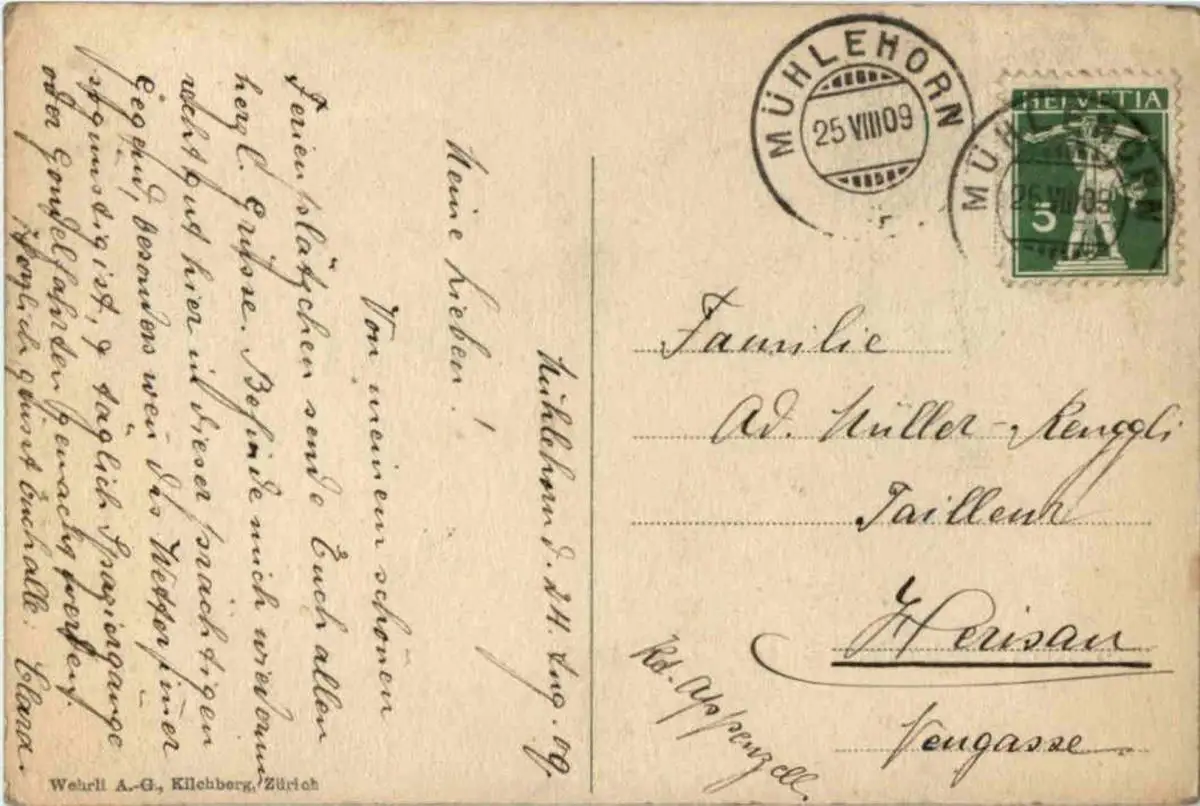 Mühlehorn d. 24. Aug. 09.
Meine Lieben!
Von meinem schönen
Ferienplätzchen sende Euch allen
herzl. Grüsse. Befinde mich wiederum
recht gut hier in dieser prächtigen
Gegend, besonders wen das Wetter
so günstig ist, & täglich Spaziergänge
oder Gondelfahrten gemacht werden.
Herzlich grüsst Euch alle: Clara.
Wehrli A.-G., Kilchberg, Zürich
MÜHLEHORN
25 VIII 09
HELVETIA
5
MÜHLEHORN
25 VIII 09
Familie
Ad. Müller-Renggli
Tailleur
Herisau
Kt. Appenzell.